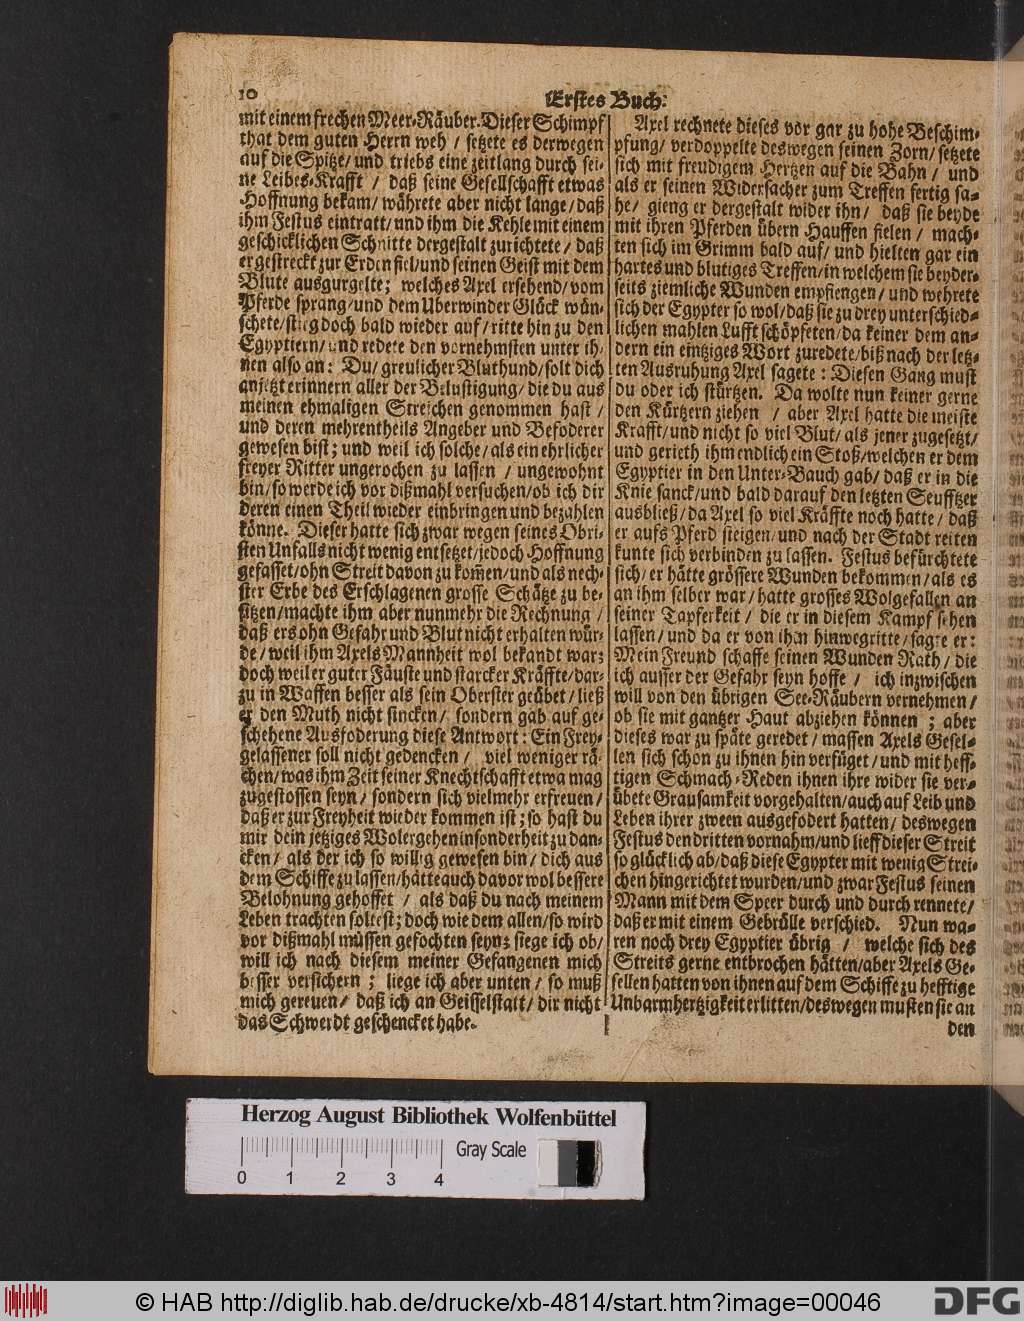 10
Erstes Buch:
mit einem frechen Meer-Räuber. Dieser Schimpf
that dem guten Herrn weh / setzete es derwegen
auf die Spitze/ und triebs eine zeitlang durch sei-
ne Leibes-Krafft / daß seine Gesellschafft etwas
Hoffnung bekam/ währete aber nicht lange/ daß
ihm Festus eintratt/ und ihm die Kehle mit einem
geschicklichen Schnitte dergestalt zurichtete/ daß
er gestreckt zur Erden fiel/ und seinen Geist mit dem
Blute ausgurgelte; welches Axel ersehend/ vom
Pferde sprang/ und dem Uberwinder Glück wün-
schete/ stieg doch bald wieder auf/ ritte hin zu den
Egyptiern/ und redete den vornehmsten unter ih-
nen also an: Du/ greulicher Bluthund/ solt dich
anjetzt erinnern aller der Belustigung/ die du aus
meinen ehmaligen Streichen genommen hast /
und deren mehrentheils Angeber und Befoderer
gewesen bist; und weil ich solche/ als ein ehrlicher
freyer Ritter ungerochen zu lassen / ungewohnt
bin/ so werde ich vor dißmahl versuchen/ ob ich dir
deren einen Theil wieder einbringen und bezahlen
könne. Dieser hatte sich zwar wegen seines Obri-
sten Unfalls nicht wenig entsetzet/ jedoch Hoffnung
gefasset/ ohn Streit davon zu kom̄en/ und als nech-
ster Erbe des Erschlagenen grosse Schätze zu be-
sitzen/ machte ihm aber nunmehr die Rechnung /
daß ers ohn Gefahr und Blut nicht erhalten wür-
de/ weil ihm Axels Mannheit wol bekandt war;
doch weil er guter Fäuste und starcker Kräffte/ dar-
zu in Waffen besser als sein Oberster geübet/ ließ
er den Muth nicht sincken/ sondern gab auf ge-
schehene Ausfoderung diese Antwort: Ein Frey-
gelassener soll nicht gedencken / viel weniger rä-
chen/ was ihm Zeit seiner Knechtschafft etwa mag
zugestossen seyn/ sondern sich vielmehr erfreuen/
daß er zur Freyheit wieder kommen ist; so hast du
mir dein jetziges Wolergehen insonderheit zu dan-
cken/ als der ich so willig gewesen bin/ dich aus
dem Schiffe zu lassen/ hätte auch davor wol bessere
Belohnung gehoffet / als daß du nach meinem
Leben trachten soltest; doch wie dem allen/ so wird
vor dißmahl müssen gefochten seyn; siege ich ob/
will ich nach diesem meiner Gefangenen mich
besser versichern ; liege ich aber unten / so muß
mich gereuen/ daß ich an Geisselstatt/ dir nicht
das Schwerdt geschencket habe.
Axel rechnete dieses vor gar zu hohe Beschim-
pfung/ verdoppelte deswegen seinen Zorn/ setzete
sich mit freudigem Hertzen auf die Bahn / und
als er seinen Widersacher zum Treffen fertig sa-
he/ gieng er dergestalt wider ihn/ daß sie beyde
mit ihren Pferden übern Hauffen fielen / mach-
ten sich im Grimm bald auf/ und hielten gar ein
hartes und blutiges Treffen/ in welchem sie beyder-
seits ziemliche Wunden empfiengen/ und wehrete
sich der Egypter so wol/ daß sie zu drey unterschied-
lichen mahlen Lufft schöpfeten/ da keiner dem an-
dern ein eintziges Wort zuredete/ biß nach der letz-
ten Ausruhung Axel sagete: Diesen Gang must
du oder ich stürtzen. Da wolte nun keiner gerne
den Kürtzern ziehen / aber Axel hatte die meiste
Krafft/ und nicht so viel Blut/ als jener zugesetzt/
und gerieth ihm endlich ein Stoß/ welchen er dem
Egyptier in den Unter-Bauch gab/ daß er in die
Knie sanck/ und bald darauf den letzten Seufftzer
ausbließ/ da Axel so viel Kräffte noch hatte/ daß
er aufs Pferd steigen/ und nach der Stadt reiten
kunte sich verbinden zu lassen. Festus befürchtete
sich/ er hätte grössere Wunden bekommen/ als es
an ihm selber war/ hatte grosses Wolgefallen an
seiner Tapferkeit / die er in diesem Kampf sehen
lassen/ und da er von ihm hinwegritte/ sagte er:
Mein Freund schaffe seinen Wunden Rath/ die
ich ausser der Gefahr seyn hoffe / ich inzwischen
will von den übrigen See-Räubern vernehmen/
ob sie mit gantzer Haut abziehen können ; aber
dieses war zu späte geredet/ massen Axels Gesel-
len sich schon zu ihnen hin verfüget/ und mit heff-
tigen Schmach-Reden ihnen ihre wider sie ver-
übete Grausamkeit vorgehalten/ auch auf Leib und
Leben ihrer zween ausgefodert hatten/ deswegen
Festus den dritten vornahm/ und lieff dieser Streit
so glücklich ab/ daß diese Egypter mit wenig Strei-
chen hingerichtet wurden/ und zwar Festus seinen
Mann mit dem Speer durch und durch rennete/
daß er mit einem Gebrülle verschied. Nun wa-
ren noch drey Egyptier übrig / welche sich des
Streits gerne entbrochen hätten/ aber Axels Ge-
sellen hatten von ihnen auf dem Schiffe zu hefftige
Unbarmhertzigkeit erlitten/ deswegen musten sie an
den
Herzog August Bibliothek Wolfenbüttel
Gray Scale
0 1 2 3 4
© HAB http://diglib.hab.de/drucke/xb-4814/start.htm?image=00046
DFG